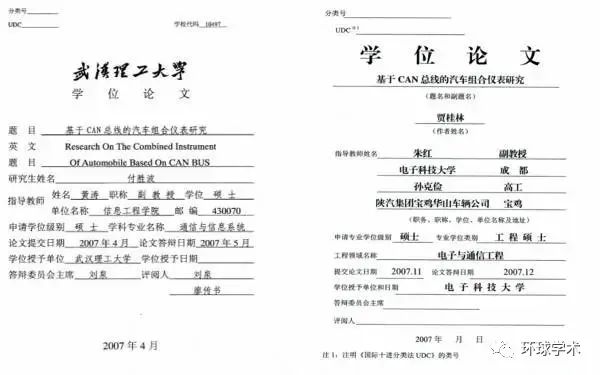 分类号
UDC 学校代码 10497
武汉理工大学
学位论文
题 目 基于CAN总线的汽车组合仪表研究
英 文 Research On The Combined Instrument
题 目 Of Automobile Based On CAN BUS
研究生姓名 付胜波
指导教师 姓名 黄涛 职称 副教授 学位 硕士
单位名称 信息工程学院 邮编 430070
申请学位级别 硕士 学科专业名称 通信与信息系统
论文提交日期 2007年4月 论文答辩日期 2007年5月
学位授予单位 武汉理工大学 学位授予日期
答辩委员会主席 刘泉 评阅人 刘泉
廖传书
2007年4月
分类号
UDC 注1
学位论文
基于 CAN 总线的汽车组合仪表研究
(题名和副题名)
贾桂林
(作者姓名)
指导教师姓名 朱红 副教授
电子科技大学 成都
孙克俭 高工
陕汽集团宝鸡华山车辆公司 宝鸡
(职务、职称、学位、单位名称及地址)
申请专业学位级别 硕士 专业学位类别 工程硕士
工程领域名称 电子与通信工程
提交论文日期 2007.11 论文答辩日期 2007.12
学位授予单位和日期 电子科技大学
答辩委员会主席
评阅人
2007年 月 日
注1:注明《国际十进分类法UDC》的类号
环球学术